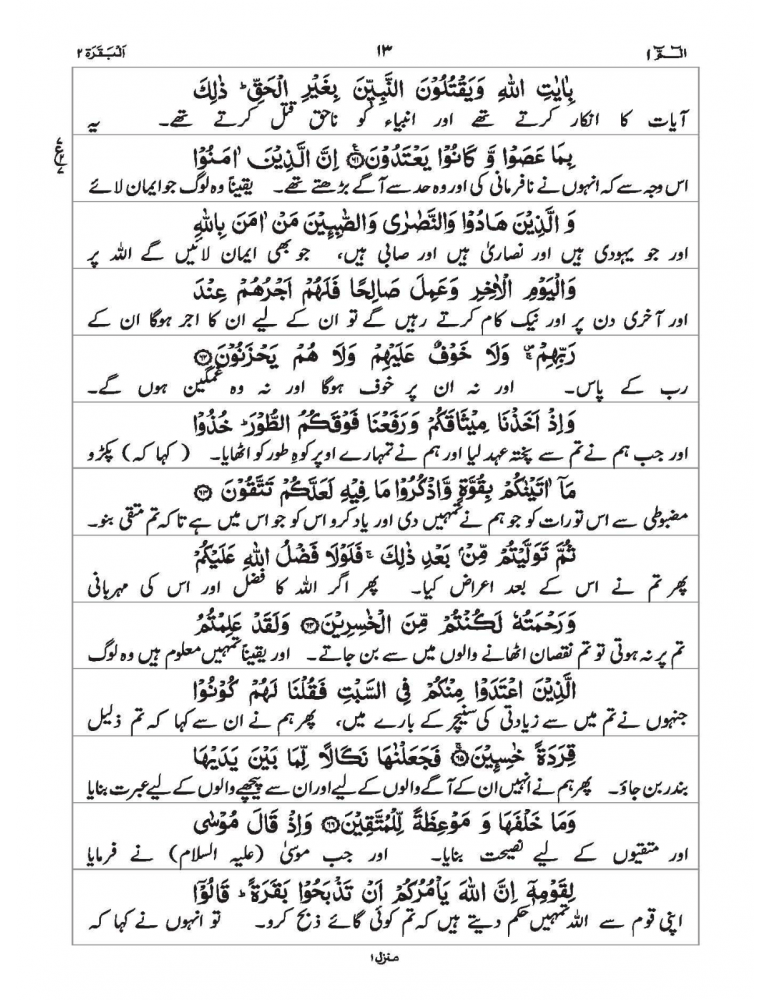 الٓـمّٓ ١ ١٣ اَلْبَقَرَة ٢
بِاٰيٰتِ اللّٰهِ وَيَقْتُلُوْنَ النَّبِيّٖنَ بِغَيْرِ الْحَقِّ ؕ ذٰلِكَ
آیات کا انکار کرتے تھے اور انبیاء کو ناحق قتل کرتے تھے۔ یہ
بِمَا عَصَوْا وَّ كَانُوْا يَعْتَدُوْنَ ۟۠ ﴿٦١﴾ اِنَّ الَّذِيْنَ اٰمَنُوْا
ع
اس وجہ سے کہ انہوں نے نافرمانی کی اور وہ حد سے آگے بڑھتے تھے۔ یقیناً وہ لوگ جو ایمان لائے
وَ الَّذِيْنَ هَادُوْا وَالنَّصٰرٰى وَالصّٰبِـِٕيْنَ مَنْ اٰمَنَ بِاللّٰهِ
اور جو یہودی ہیں اور نصاریٰ ہیں اور صابی ہیں، جو بھی ایمان لائیں گے اللہ پر
وَالْيَوْمِ الْاٰخِرِ وَعَمِلَ صَالِحًا فَلَهُمْ اَجْرُهُمْ عِنْدَ
اور آخری دن پر اور نیک کام کرتے رہیں گے تو ان کے لیے ان کا اجر ہوگا ان کے
رَبِّهِمْ ۪ۚ وَلَا خَوْفٌ عَلَيْهِمْ وَلَا هُمْ يَحْزَنُوْنَ ﴿٦٢﴾
رب کے پاس۔ اور نہ ان پر خوف ہوگا اور نہ وہ غمگین ہوں گے۔
وَاِذْ اَخَذْنَا مِيْثَاقَكُمْ وَرَفَعْنَا فَوْقَكُمُ الطُّوْرَ ؕ خُذُوْا
اور جب ہم نے تم سے پختہ عہد لیا اور ہم نے تمہارے اوپر کوہِ طور کو اٹھایا۔ ( کہا کہ ) پکڑو
مَاۤ اٰتَيْنٰكُمْ بِقُوَّةٍ وَّاذْكُرُوْا مَا فِيْهِ لَعَلَّكُمْ تَتَّقُوْنَ ﴿٦٣﴾
مضبوطی سے اس تورات کو جو ہم نے تمہیں دی اور یاد کرو اس کو جو اس میں ہے تاکہ تم متقی بنو۔
ثُمَّ تَوَلَّيْتُمْ مِّنْۢ بَعْدِ ذٰلِكَ ۚ فَلَوْلَا فَضْلُ اللّٰهِ عَلَيْكُمْ
پھر تم نے اس کے بعد اعراض کیا۔ پھر اگر اللہ کا فضل اور اس کی مہربانی
وَرَحْمَتُهٗ لَكُنْتُمْ مِّنَ الْخٰسِرِيْنَ ﴿٦٤﴾ وَلَقَدْ عَلِمْتُمُ
تم پر نہ ہوتی تو تم نقصان اٹھانے والوں میں سے بن جاتے۔ اور یقیناً تمہیں معلوم ہیں وہ لوگ
الَّذِيْنَ اعْتَدَوْا مِنْكُمْ فِى السَّبْتِ فَقُلْنَا لَهُمْ كُوْنُوْا
جنہوں نے تم میں سے زیادتی کی سنیچر کے بارے میں، پھر ہم نے ان سے کہا کہ تم ذلیل
قِرَدَةً خٰسِـِٕيْنَ ﴿٦٥﴾ فَجَعَلْنٰهَا نَكَالًا لِّمَا بَيْنَ يَدَيْهَا
بندر بن جاؤ۔ پھر ہم نے انہیں ان کے آگے والوں کے لیے اور ان سے پیچھے والوں کے لیے عبرت بنایا
وَمَا خَلْفَهَا وَ مَوْعِظَةً لِّلْمُتَّقِيْنَ ﴿٦٦﴾ وَاِذْ قَالَ مُوْسٰى
اور متقیوں کے لیے نصیحت بنایا۔ اور جب موسیٰ (علیہ السلام) نے فرمایا
لِقَوْمِهٖۤ اِنَّ اللّٰهَ يَاْمُرُكُمْ اَنْ تَذْبَحُوْا بَقَرَةً ؕ قَالُوْۤا
اپنی قوم سے اللہ تمہیں حکم دیتے ہیں کہ تم کوئی گائے ذبح کرو۔ تو انہوں نے کہا کہ
منزل ١